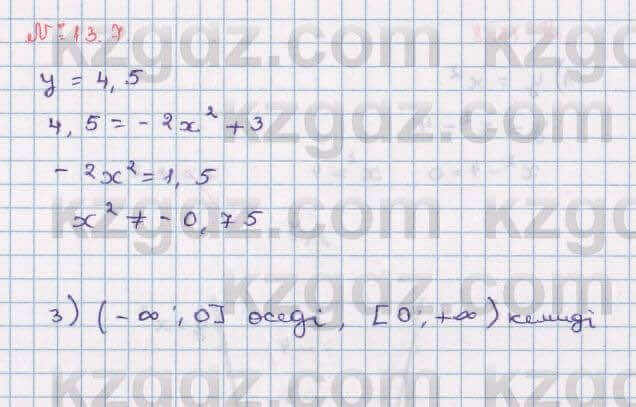 № 13.7
y = 4,5
4,5 = -2x² + 3
-2x² = 1,5
x² ≠ -0,75
3) (-∞; 0] өседі, [0; +∞) кемиді
kzgdz.com
kzgdz.com
kzgdz.com
kzgdz.com
kzgdz.com